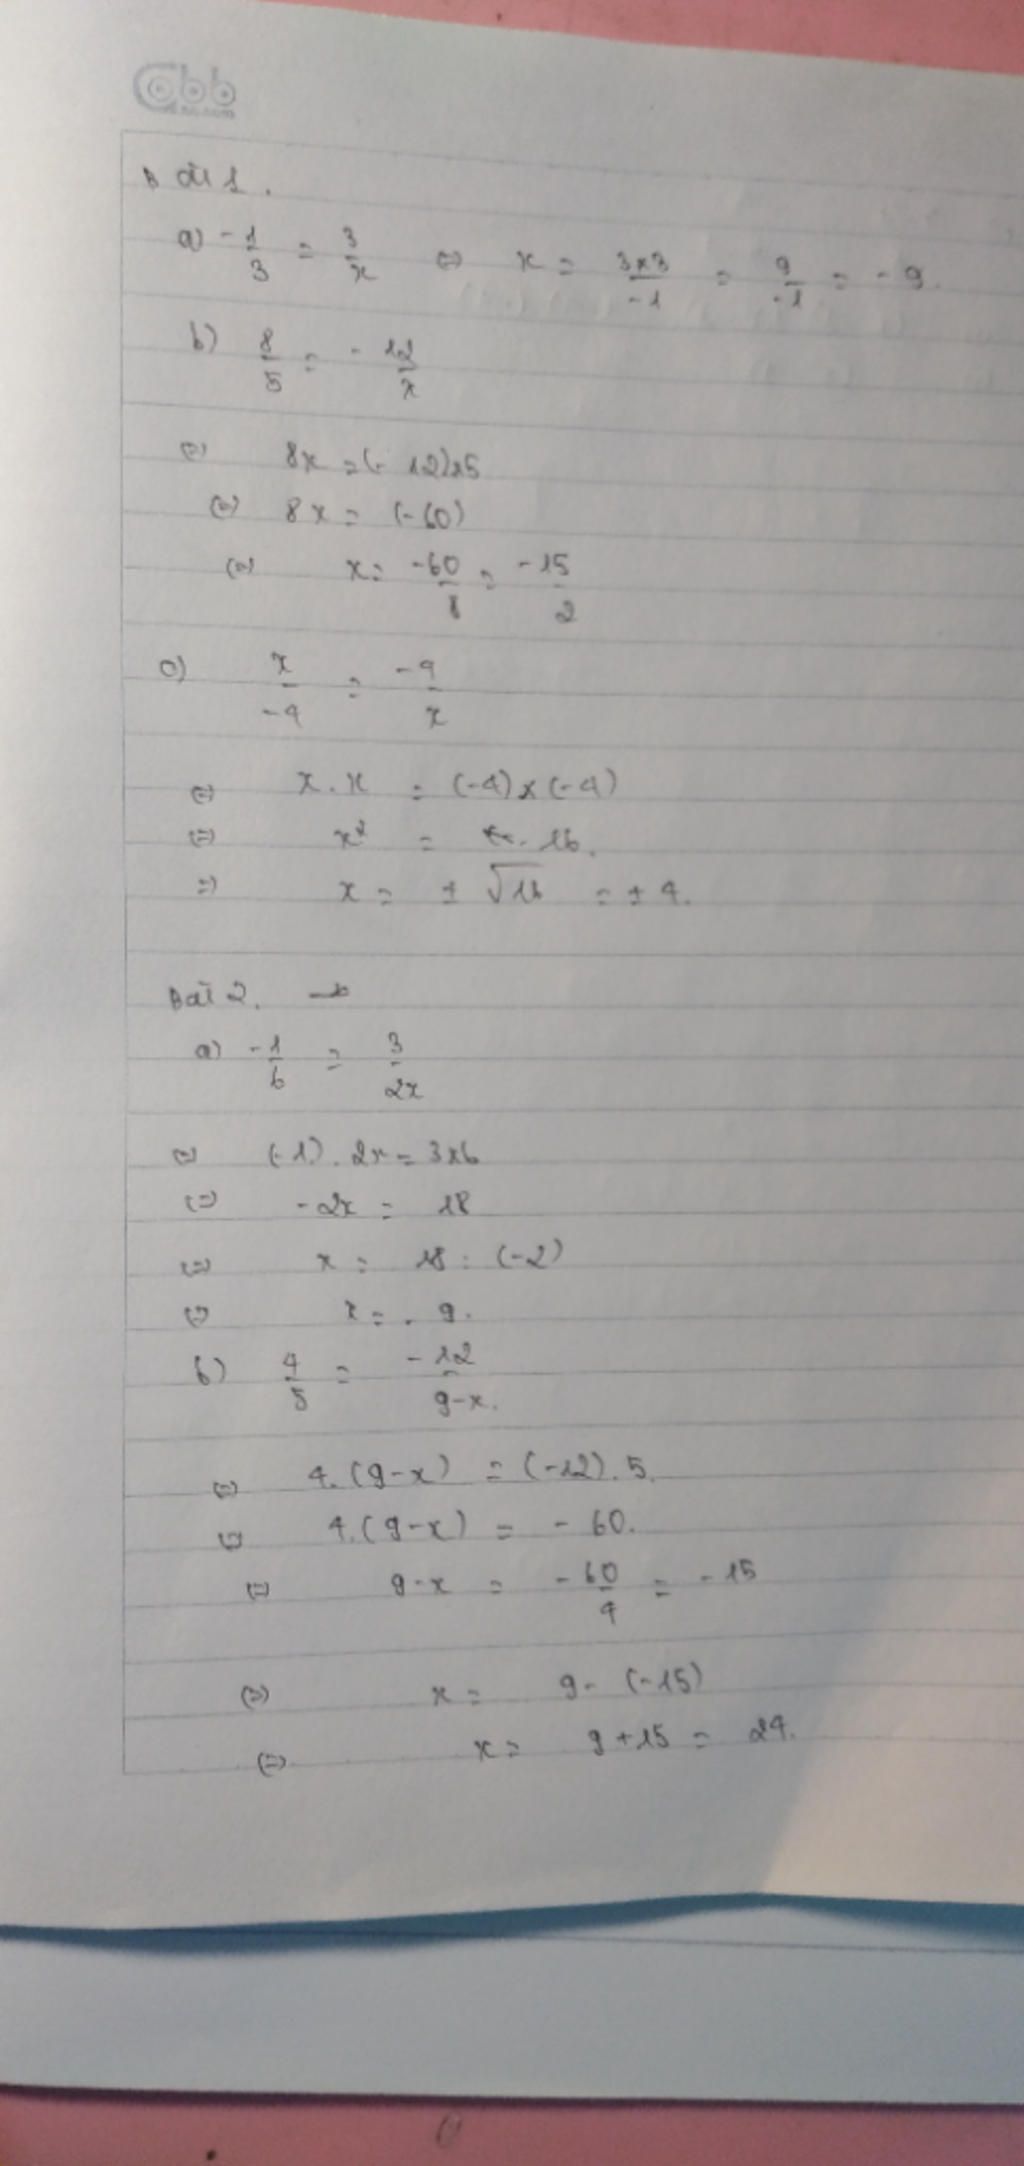 Bài 1.
a) -1/3 = 3/x ⇔ x = 3×3/-1 = 9/-1 = -9.
b) 8/5 = -12/x
⇔ 8x = (-12)×5
⇔ 8x = (-60)
⇔ x = -60/8 = -15/2
c) x/-4 = -4/x
⇔ x.x = (-4)×(-4)
⇔ x² = 16.
⇒ x = ± √16 = ± 4.
Bài 2.
a) -1/6 = 3/2x
⇔ (-1).2x = 3×6
⇔ -2x = 18
⇔ x = 18 : (-2)
⇔ x = - 9.
b) 4/5 = -12/9-x.
⇔ 4.(9-x) = (-12).5.
⇔ 4.(9-x) = -60.
⇔ 9-x = -60/4 = -15
⇔ x = 9-(-15)
⇔ x = 9+15 = 24.